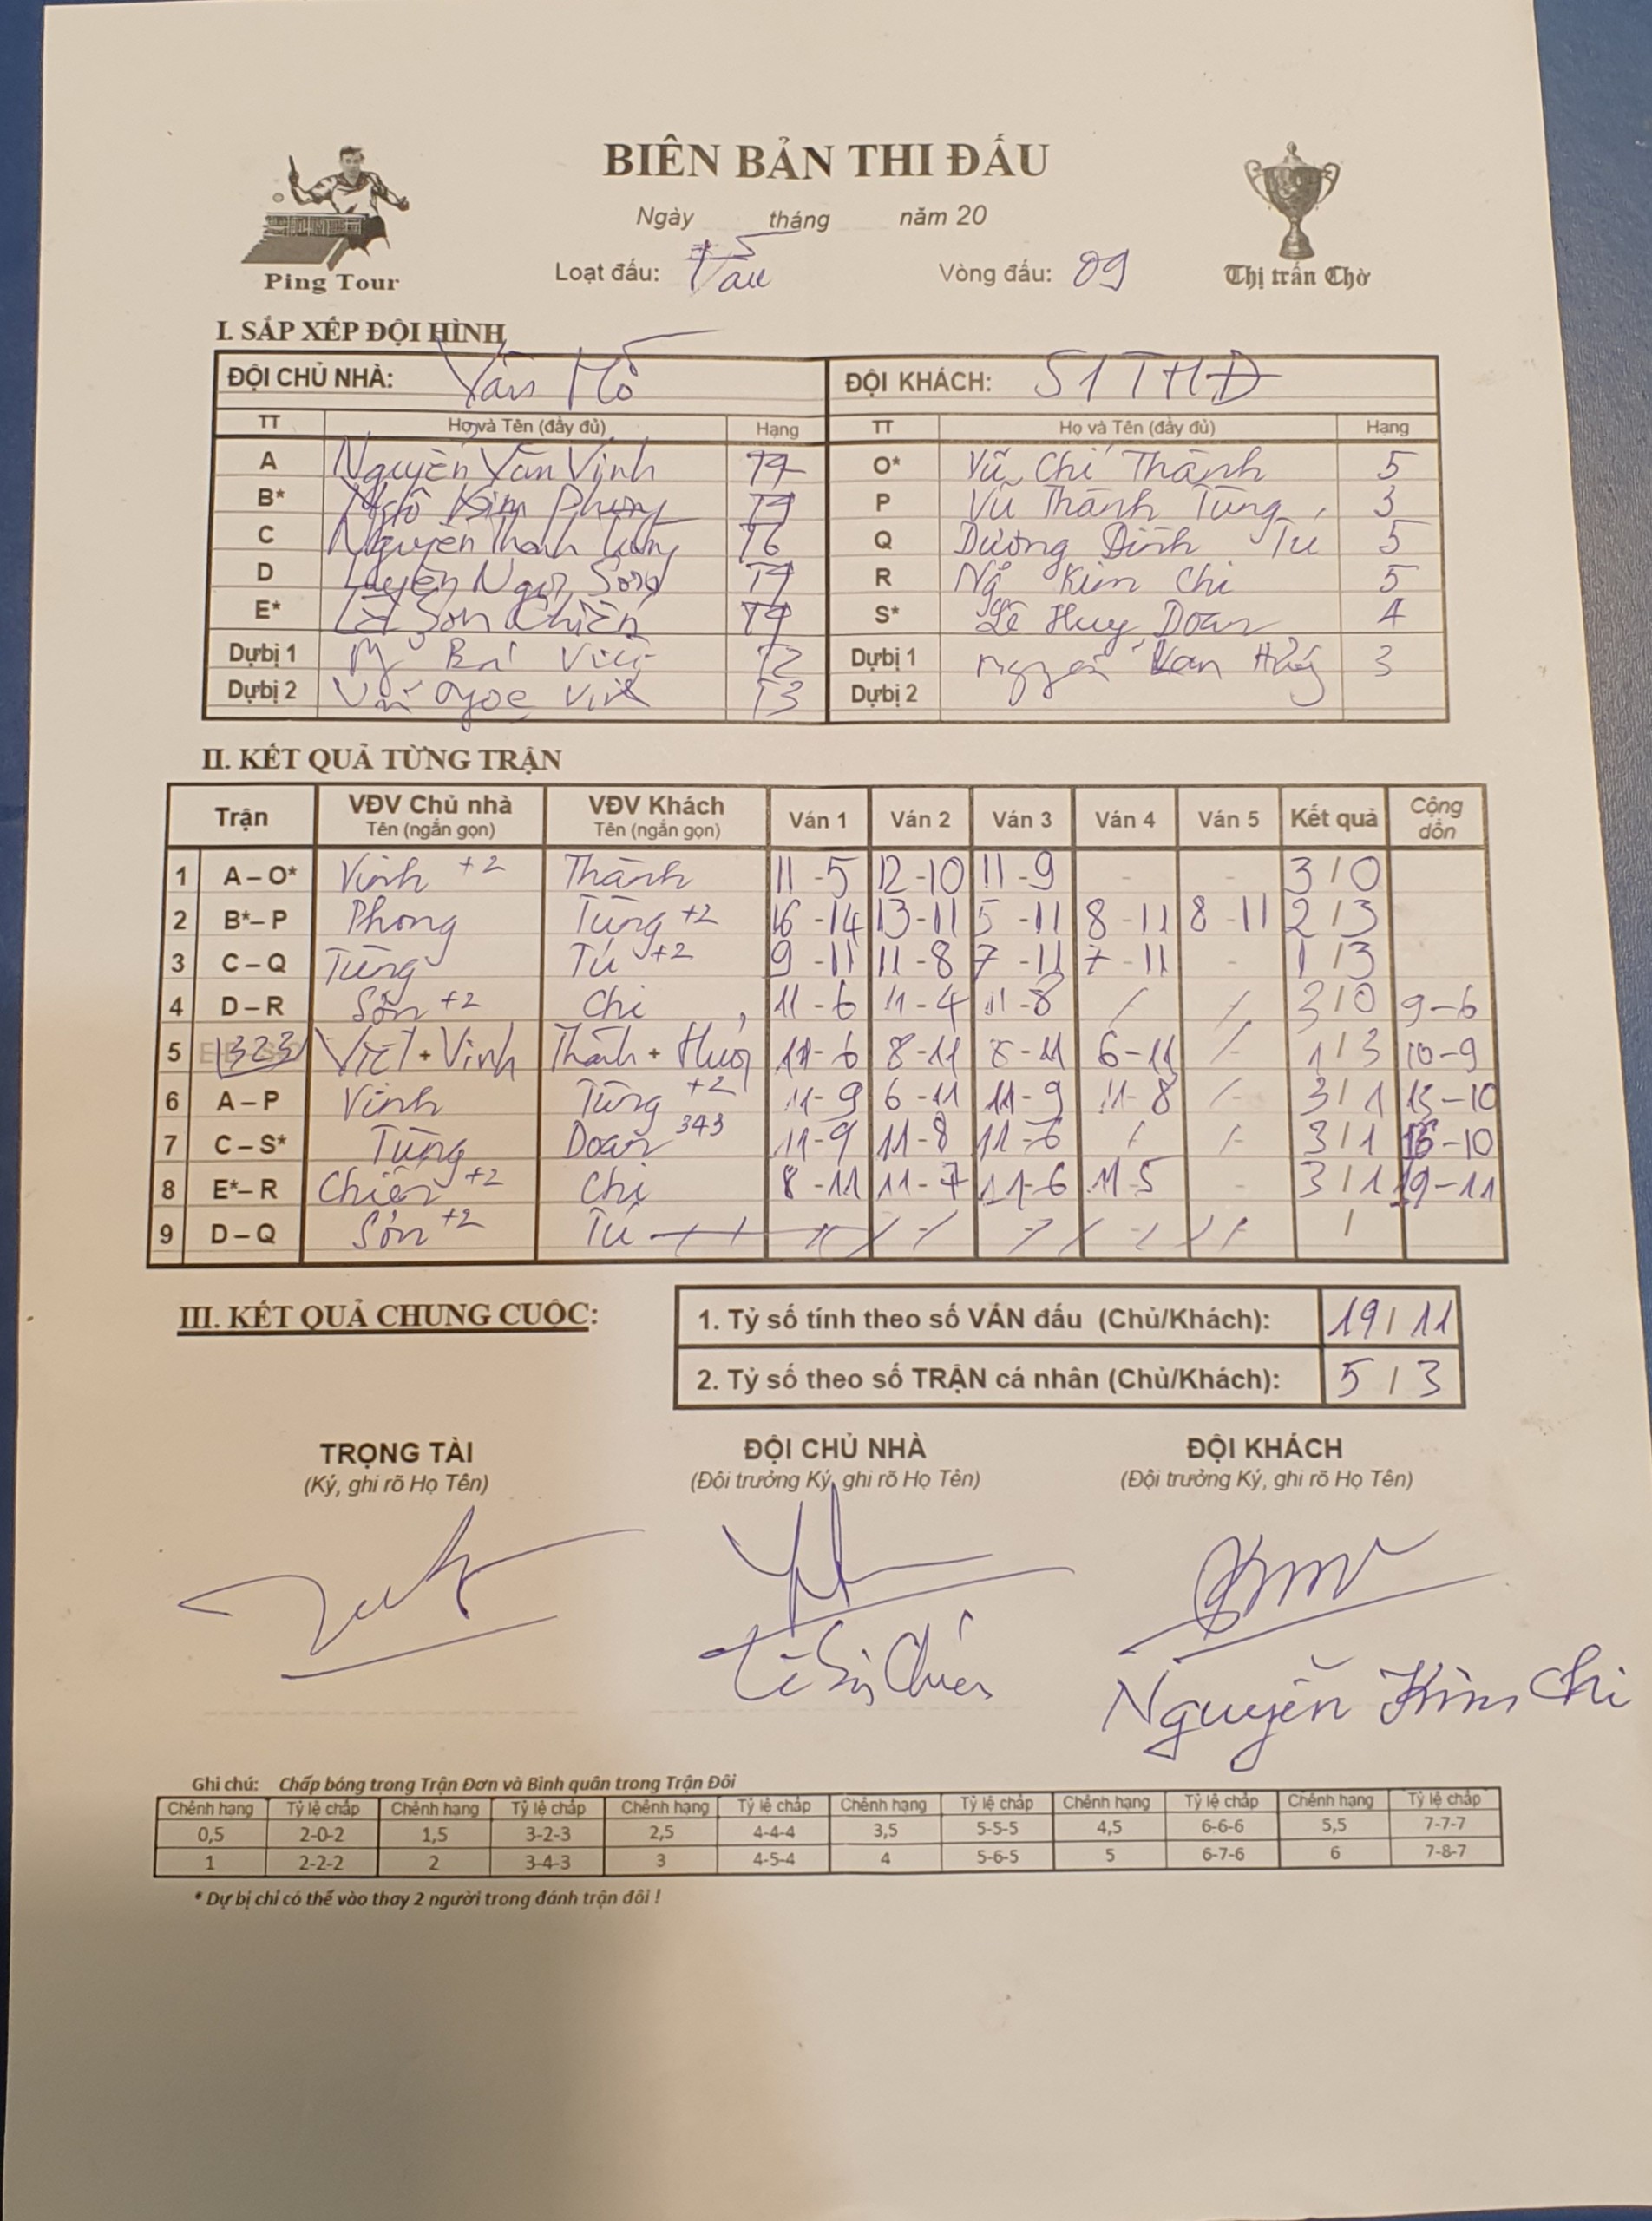 BIÊN BẢN THI ĐẤU
Ngày tháng năm 20
Ping Tour
Loạt đấu:
Vòng đấu: 09
Thị trấn Chờ
I. SẮP XẾP ĐỘI HÌNH
ĐỘI CHỦ NHÀ: Vân Hồ ĐỘI KHÁCH: S1 THĐ
TT Họ và Tên (đầy đủ) Hạng TT Họ và Tên (đầy đủ) Hạng
A Nguyễn Văn Vinh O* Vũ Chí Thành 5
B* Ngô Kim Phong P Vũ Thành Tùng 3
C Nguyễn Thanh Tùng T6 Q Dương Đình Tú 5
D Luyện Ngọc Sơn R Ng Kim Chi 5
E* Lê Sơn Chiến S* Lê Huy Doan 4
Dự bị 1 Bá Việt T2 Dự bị 1 Nguyễn Văn 3
Dự bị 2 Vũ Ngọc T3 Dự bị 2
II. KẾT QUẢ TỪNG TRẬN
Trận VĐV Chủ nhà Tên (ngắn gọn) VĐV Khách Tên (ngắn gọn) Ván 1 Ván 2 Ván 3 Ván 4 Ván 5 Kết quả Cộng dồn
1 A – O* Vinh +2 Thành 11 - 5 12 - 10 11 - 9 - - 3 / 0
2 B* – P Phong Tùng +2 16 - 14 13 - 11 5 - 11 8 - 11 8 - 11 2 / 3
3 C – Q Tùng Tú +2 9 - 11 11 - 8 7 - 11 7 - 11 - 1 / 3
4 D – R Sơn +2 Chi 11 - 6 11 - 4 11 - 8 / / 3 / 0 9 - 6
5 323 Việt + Vinh Thành + 11 - 6 8 - 11 8 - 11 6 - 11 / 1 / 3 10 - 9
6 A – P Vinh Tùng +2 11 - 9 6 - 11 11 - 9 11 - 8 / - 3 / 1 13 - 10
7 C – S* Tùng Doan 343 11 - 9 11 - 8 11 - 6 / / - 3 / 1 16 - 10
8 E* – R Chiến +2 Chi 8 - 11 11 - 7 11 - 6 11 - 5 - 3 / 1 19 - 11
9 D – Q Sơn +2 Tú /
III. KẾT QUẢ CHUNG CUỘC:
1. Tỷ số tính theo số VÁN đấu (Chủ/Khách): 19 / 11
2. Tỷ số theo số TRẬN cá nhân (Chủ/Khách): 5 / 3
TRỌNG TÀI ĐỘI CHỦ NHÀ ĐỘI KHÁCH
(Ký, ghi rõ Họ Tên) (Đội trưởng Ký, ghi rõ Họ Tên) (Đội trưởng Ký, ghi rõ Họ Tên)
Lê Sơn Chiến
Nguyễn Kim Chi
Ghi chú: Chấp bóng trong Trận Đơn và Bình quân trong Trận Đôi
Chênh hạng Tỷ lệ chấp Chênh hạng Tỷ lệ chấp Chênh hạng Tỷ lệ chấp Chênh hạng Tỷ lệ chấp Chênh hạng Tỷ lệ chấp Chênh hạng Tỷ lệ chấp
0,5 2-0-2 1,5 3-2-3 2,5 4-4-4 3,5 5-5-5 4,5 6-6-6 5,5 7-7-7
1 2-2-2 2 3-4-3 3 4-5-4 4 5-6-5 5 6-7-6 6 7-8-7
* Dự bị chỉ có thể vào thay 2 người trong đánh trận đôi !